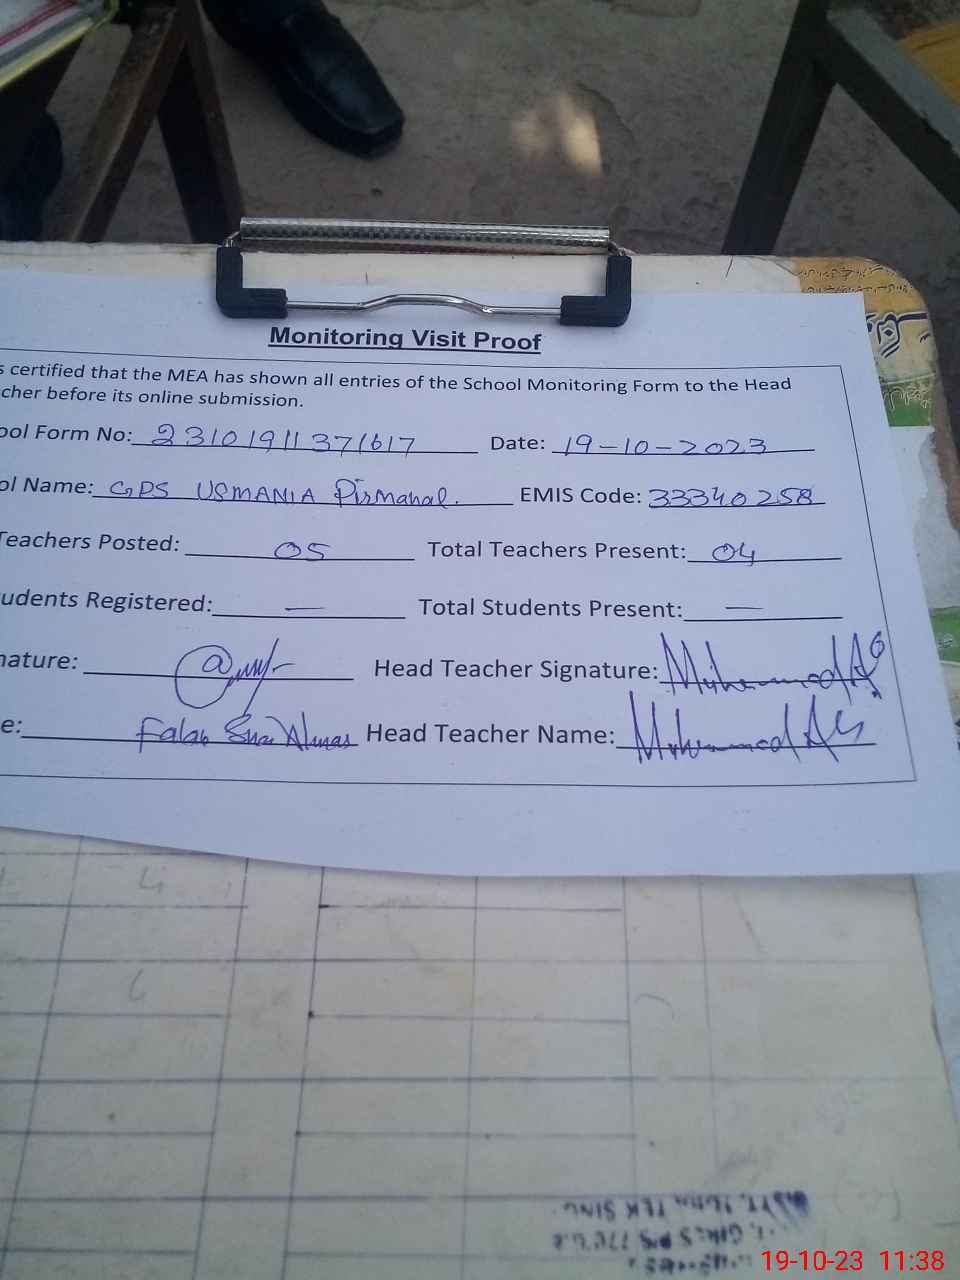 Monitoring Visit Proof
s certified that the MEA has shown all entries of the School Monitoring Form to the Head
cher before its online submission.
ool Form No: 23101911371617 Date: 19-10-2023
ol Name: GPS USMANIA Pirmahal. EMIS Code: 33340258
Teachers Posted: 05 Total Teachers Present: 04
udents Registered: — Total Students Present: —
nature: Head Teacher Signature: Muhammad
e: Head Teacher Name: Muhammad
19-10-23 11:38